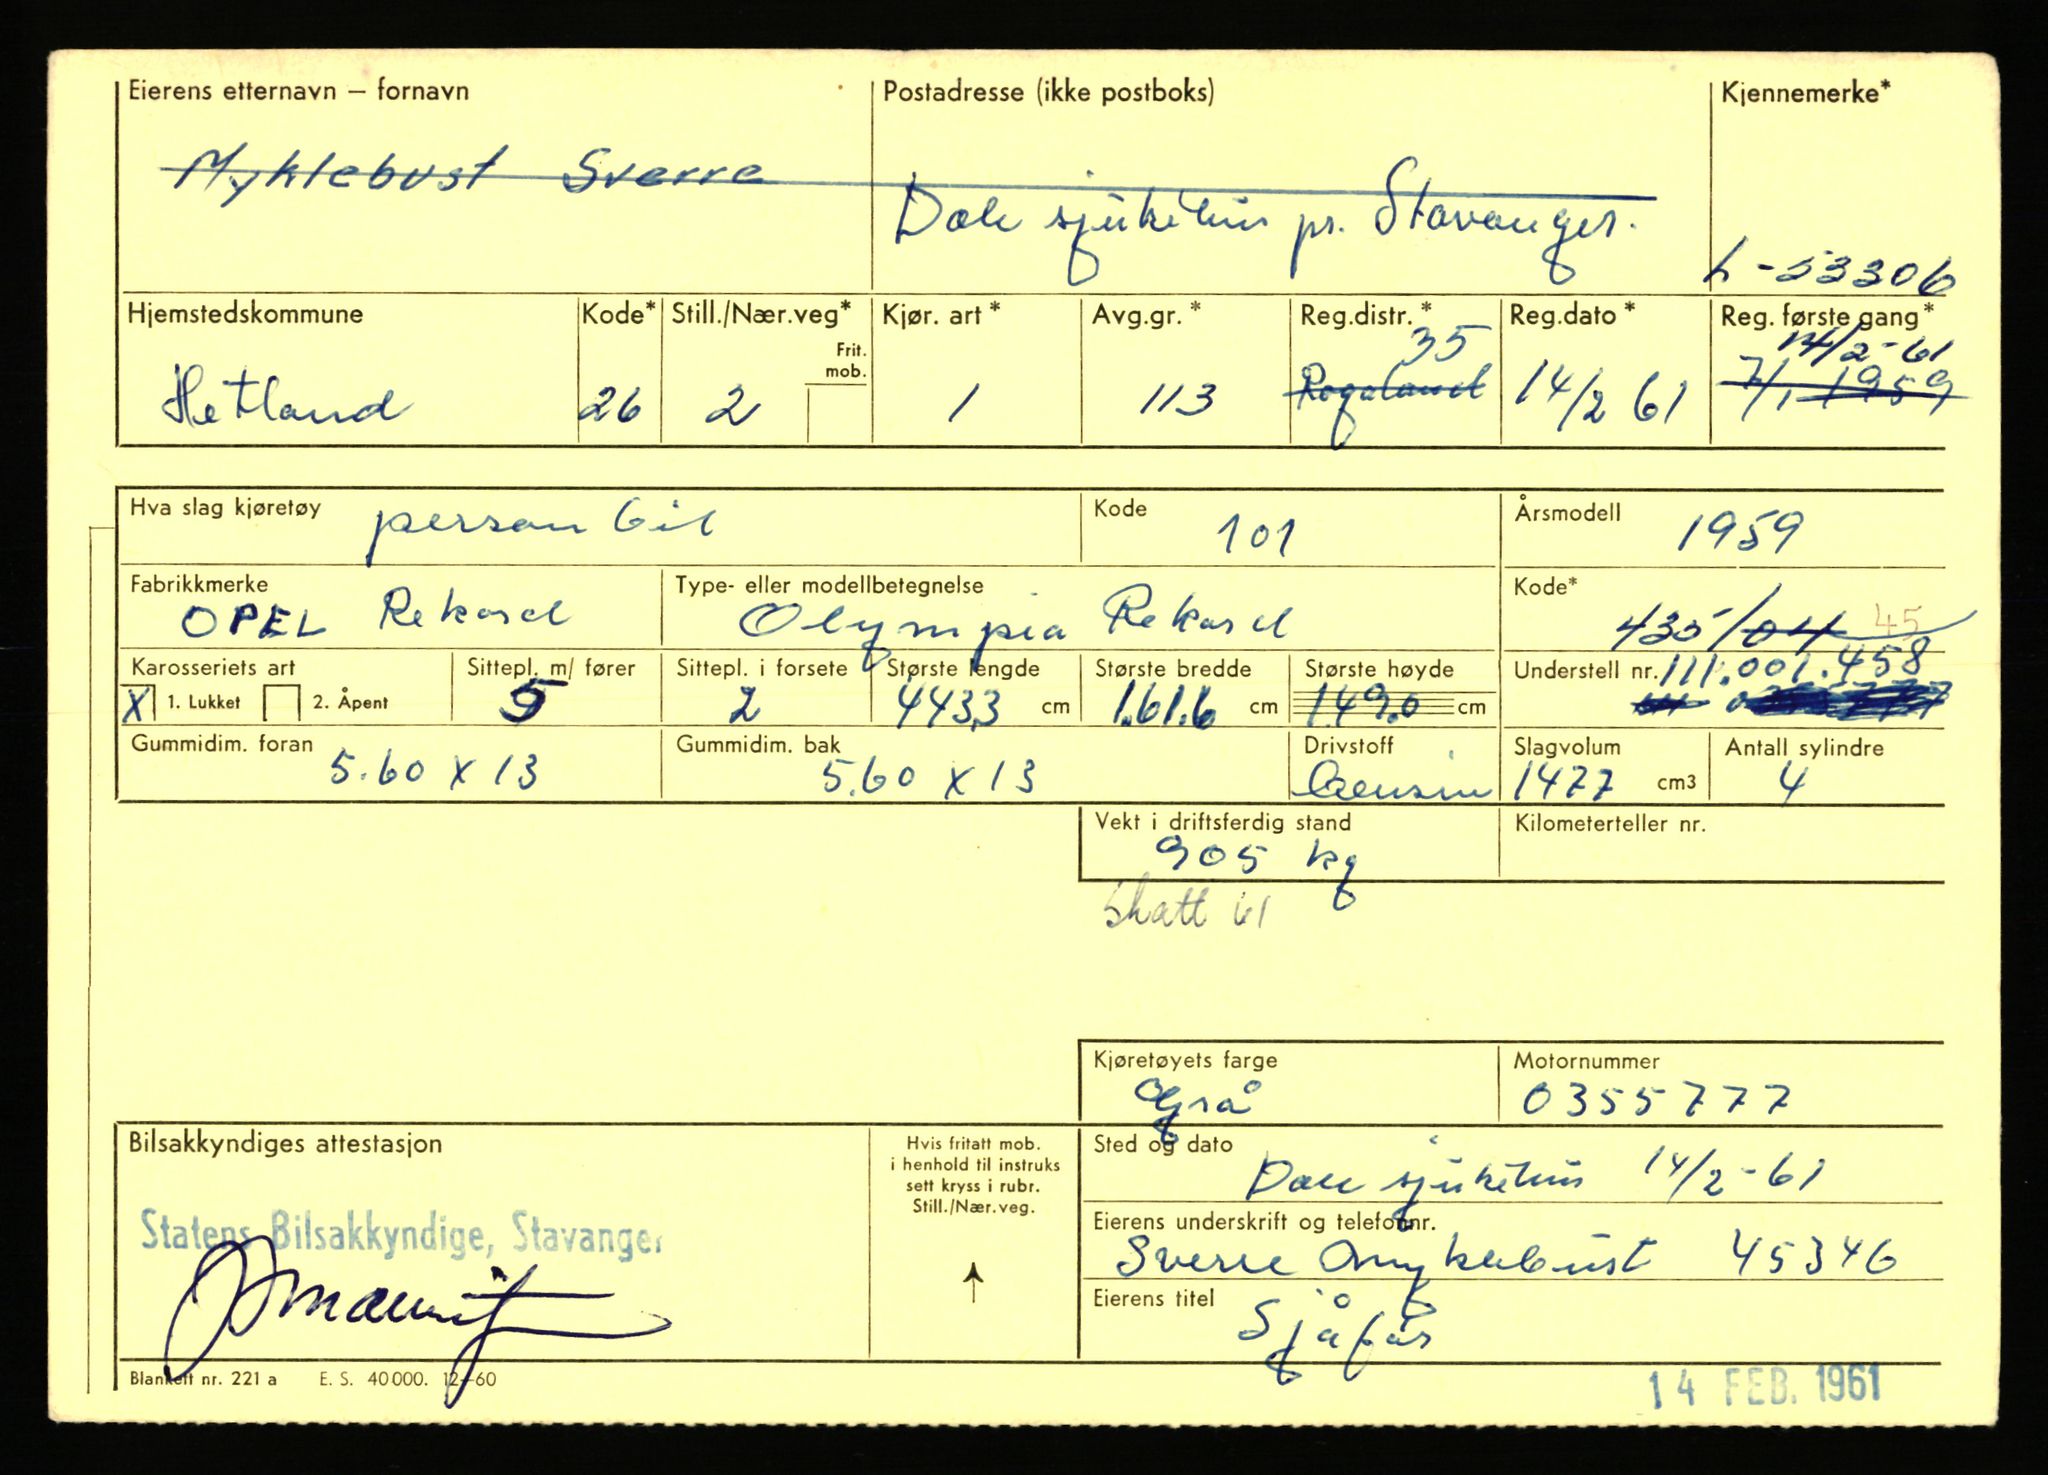 Eierens etternavn – fornavn
Postadresse (ikke postboks)
Kjennemerke*
Myklebust Sverre
Dale sjukehus pr. Stavanger.
L-53306
Hjemstedskommune
Kode*
Still./Nær.veg*
Frit. mob.
Kjør. art *
Avg.gr. *
Reg.distr. *
Reg.dato *
Reg. første gang*
35
14/2-61
Hetland
26
2
1
113
Rogaland
14/2 61
7/1 1959
Hva slag kjøretøy
personbil
Kode
101
Årsmodell
1959
Fabrikkmerke
OPEL Rekord
Type- eller modellbetegnelse
Olympia Rekord
Kode*
435/04 45
Karosseriets art
X 1. Lukket
2. Åpent
Sittepl. m/ fører
5
Sittepl. i forsete
2
Største lengde
443,3 cm
Største bredde
1.61.6 cm
Største høyde
149.0 cm
Understell nr. 111.001.458
Gummidim. foran
5.60 x 13
Gummidim. bak
5.60 x 13
Drivstoff
Bensin
Slagvolum
1477 cm3
Antall sylindre
4
Vekt i driftsferdig stand
905 kg
Kilometerteller nr.
Skatt 61
Kjøretøyets farge
Grå
Motornummer
0355777
Bilsakkyndiges attestasjon
Statens Bilsakkyndige, Stavanger
Hvis fritatt mob.
i henhold til instruks
sett kryss i rubr.
Still./Nær.veg.
Sted og dato
Dale sjukehus 14/2-61
Eierens underskrift og telefonnr.
Sverre Myklebust 45346
Eierens titel
Sjåfør
Blankett nr. 221 a E. S. 40 000. 12–60
14 FEB. 1961